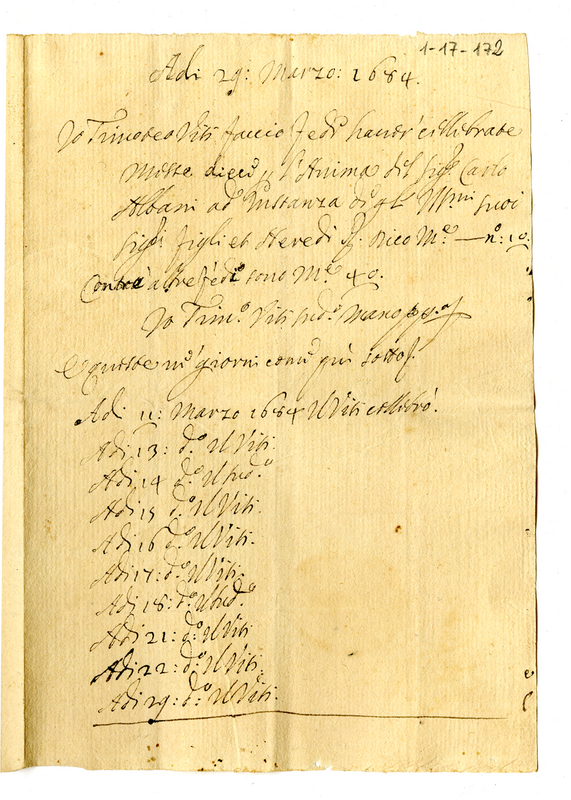 1-17-172
Adi 29: Marzo: 1684.
Io Timoteo Viti faccio fede haver' cellebrate
Messe dieci, l'Anima del Sigr. Carlo
Albani ad' Instanza di gl' Suoi
Sigri. figli et Heredi dico Me. — no: 10:
Contre altre fedi sono Me. 40.
Io Timo. Viti sudo. mano pp.a
E queste ne' giorni come qui sotto.
Adi 11: Marzo 1684 Il Viti cellebrò.
Adi 13: do. Il Viti.
Adi 14 do. Il sudo.
Adi 15 do. Il Viti.
Adi 16 do. Il Viti.
Adi 17: do. Il Viti.
Adi 18: do. Il sudo.
Adi 21: do. Il Viti
Adi 22: do. Il Viti.
Adi 29: do. Il Viti.